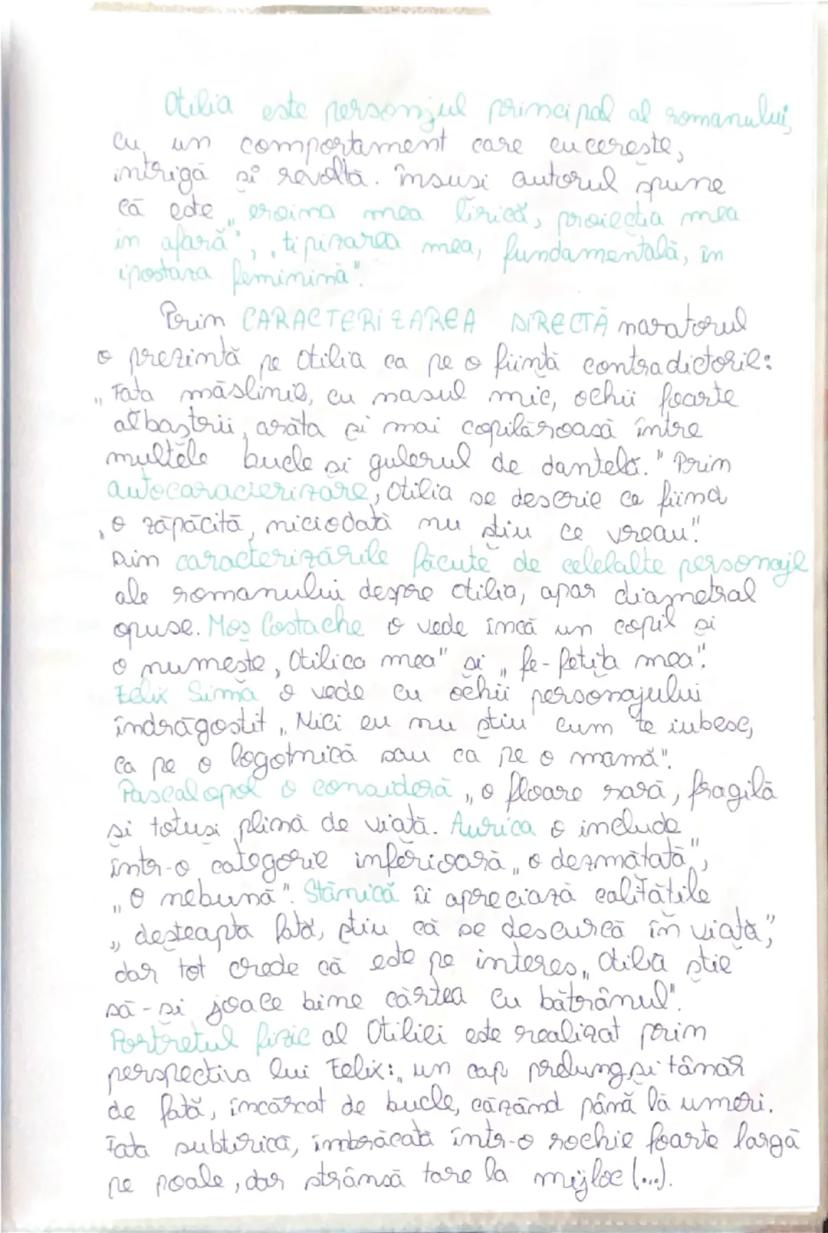 Otilia este personjul principal al romanului,
cu un comportament care cucerește,
intrigă și revoltă. Însuși autorul spune
că este „eroina mea lirică, proiecția mea
în afară", „tipizarea mea, fundamentală, în
ipostaza feminină".
Prin CARACTERIZAREA DIRECTĂ naratorul
o prezintă pe Otilia ca pe o ființă contradictorie:
„Fata măslinie, cu nasul mic, ochii foarte
albaștrii, arăta și mai copilăroasă între
multele bucle și gulerul de dantelă." Prin
autocaracterizare, Otilia se descrie ca fiind
„o zăpăcită, niciodată nu știu ce vreau".
Din caracterizările făcute de celelalte personaje
ale romanului despre Otilia, apar diametral
opuse. Moș Costache o vede încă un copil și
o numește „Otilica mea" și „fe-fetița mea".
Felix Sima o vede cu ochii personajului
îndrăgostit „Nici eu nu știu cum te iubesc,
ca pe o logotnică sau ca pe o mamă".
Pascalopol o consideră „o floare rară, fragilă
și totuși plină de viață. Aurica o include
într-o categorie inferioară „o dezmățată",
„O nebună". Stănică îi apreciază calitățile
„deșteaptă fată, știu că se descurcă în viață",
dar tot crede că este pe interes „Otilia știe
să-și joace bine cărtea cu bătrânul".
Portretul fizic al Otiliei este realizat prin
perspectiva lui Felix: „un cap prelung și tânăr
de fată, încărcat de bucle, căzând până la umeri.
Fata subtirică, îmbrăcată într-o rochie foarte largă
pe poale, dar strânsă tare la mijloc (...).